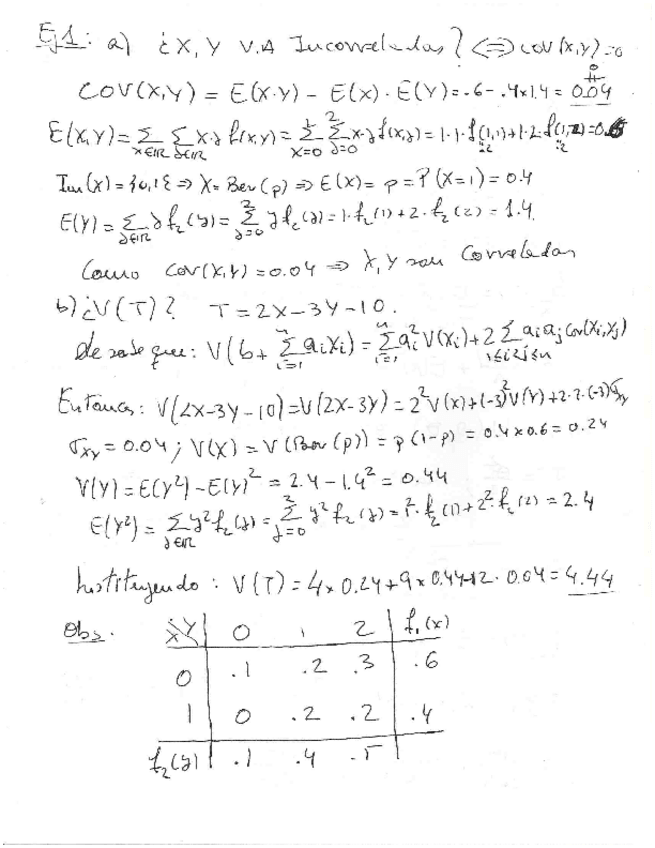 Ej1: a) ¿X, Y V.A Incorreladas? ⟺ cov(x,y)=0
COV(X,Y) = E(X·Y) - E(X)·E(Y) = .6 - .4x1.4 = 0.04 ≠ 0
E(X,Y) = Σ_{x∈ℝ} Σ_{y∈ℝ} x·y f(x,y) = Σ_{x=0}^{1} Σ_{y=0}^{2} x·y f(x,y) = 1·1·f(1,1) + 1·2·f(1,2) = 0.6
.2 .2
Im(x) = {0,1} ⇒ X = Ber(p) ⇒ E(X) = p = P(X=1) = 0.4
E(Y) = Σ_{y∈ℝ} y f₂(y) = Σ_{y=0}^{2} y f₂(y) = 1·f₂(1) + 2·f₂(2) = 1.4
Como cov(X,Y) = 0.04 ⇒ X, Y son Correladas
b) ¿V(T)? T = 2X-3Y-10.
Se sabe que: V(b + Σ_{i=1}^{n} aᵢXᵢ) = Σ_{i=1}^{n} aᵢ² V(Xᵢ) + 2 Σ_{1≤i<j≤n} aᵢ aⱼ Cov(Xᵢ,Xⱼ)
Entonces: V(2X-3Y-10) = V(2X-3Y) = 2² V(X) + (-3)² V(Y) + 2·2·(-3) σ_xy
σ_xy = 0.04 ; V(X) = V(Ber(p)) = p(1-p) = 0.4 x 0.6 = 0.24
V(Y) = E(Y²) - E(Y)² = 2.4 - 1.4² = 0.44
E(Y²) = Σ_{y∈ℝ} y² f₂(y) = Σ_{y=0}^{2} y² f₂(y) = 1²·f₂(1) + 2²·f₂(2) = 2.4
Sustituyendo : V(T) = 4x0.24+9x0.44-12·0.04 = 4.44
Obs. X\Y 0 1 2 f₁(x)
0 .1 .2 .3 .6
1 0 .2 .2 .4
f₂(y) .1 .4 .5